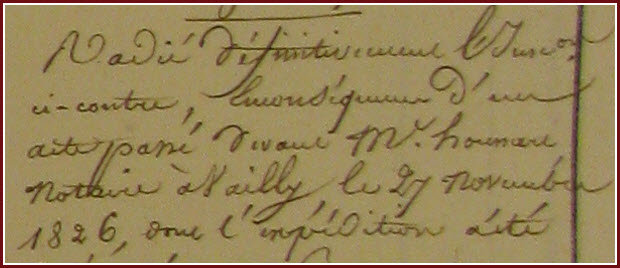 Radié définitivement l'Inscon
ci-contre, En conséquence d'un
acte passé devant Mr.
Notaire à Vailly, le 27 novembre
1826, dont l'expédition a été